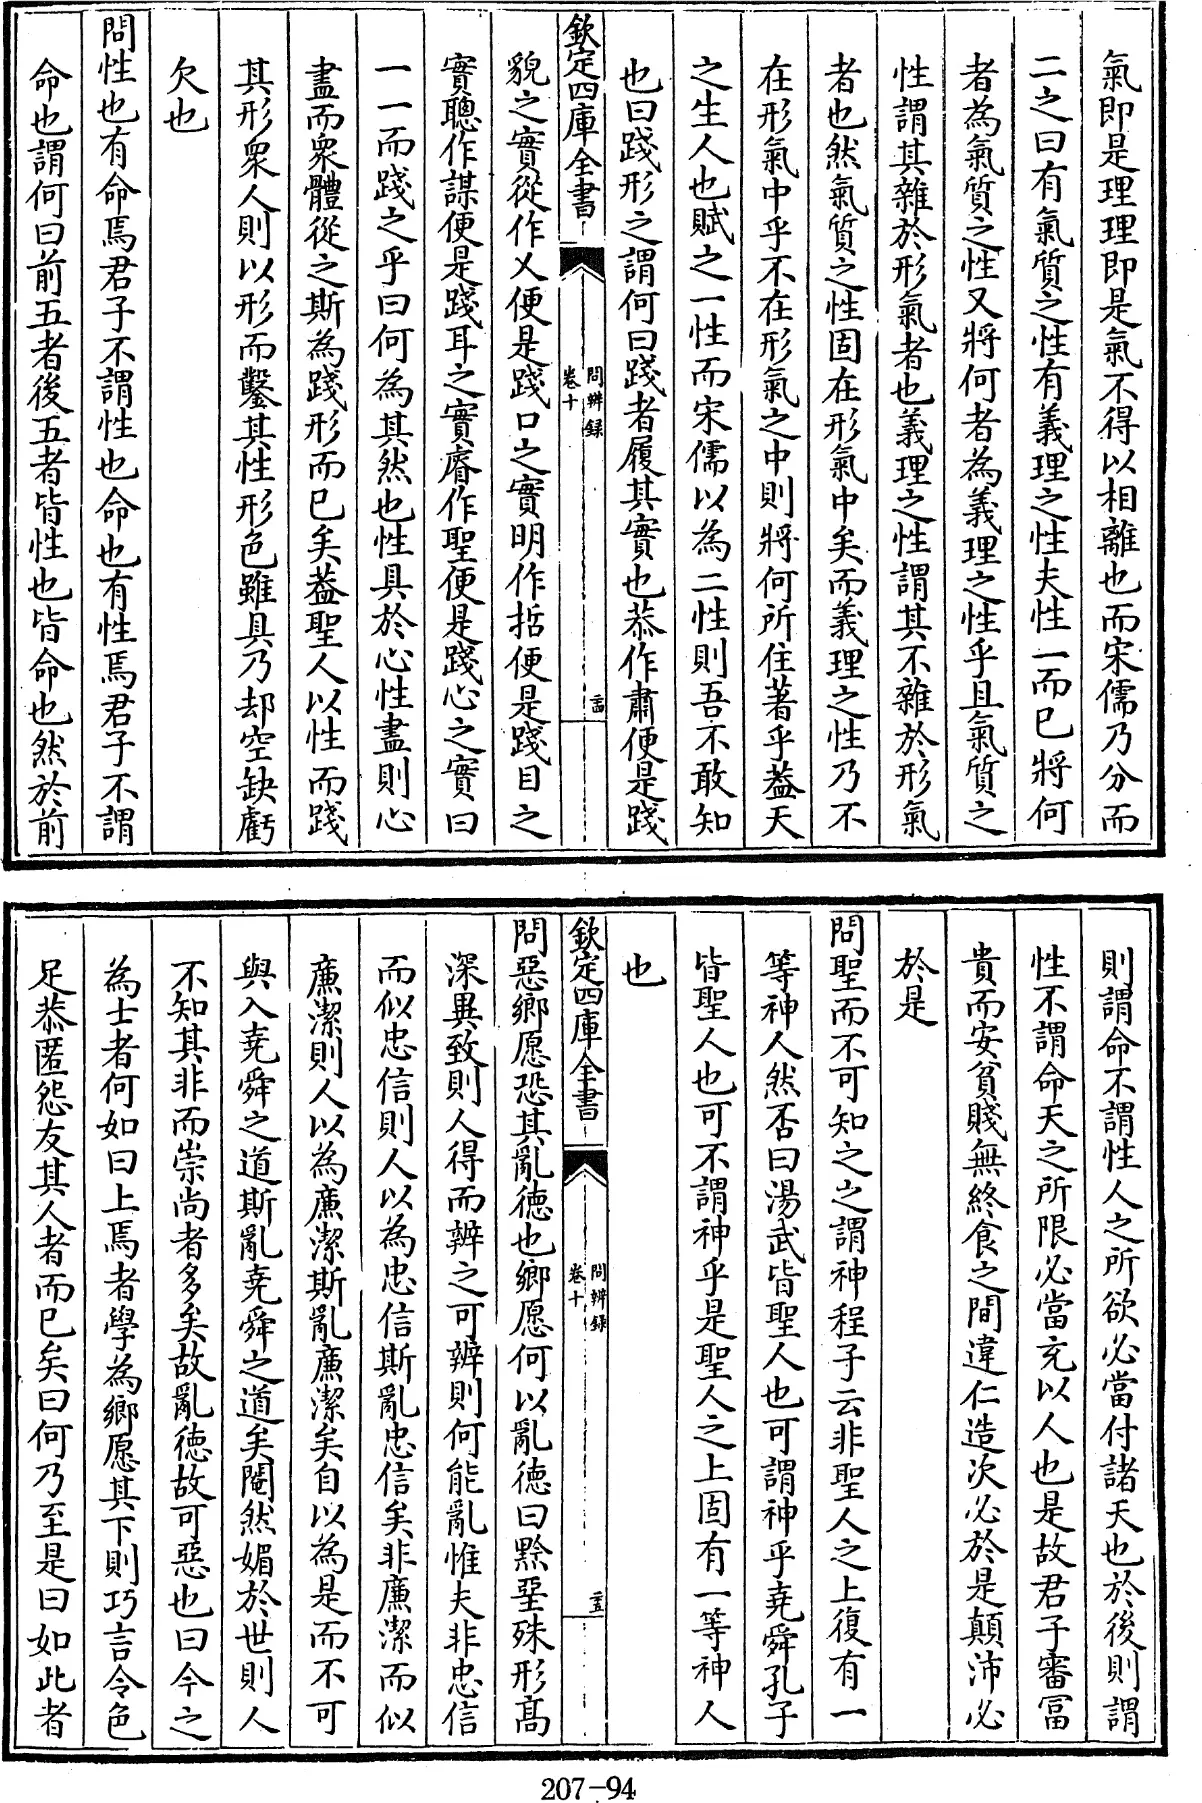 氣即是理理即是氣不得以相離也而宋儒乃分而
二之曰有氣質之性有義理之性夫性一而已將何
者為氣質之性又將何者為義理之性乎且氣質之
性謂其雜於形氣者也義理之性謂其不雜於形氣
者也然氣質之性固在形氣中矣而義理之性乃不
在形氣中乎不在形氣之中則將何所住著乎葢天
之生人也賦之一性而宋儒以為二性則吾不敢知
也曰踐形之謂何曰踐者履其實也恭作肅便是踐
欽定四庫全書
問辨録
卷十
貌之實從作乂便是踐口之實明作哲便是踐目之
實聰作謀便是踐耳之實睿作聖便是踐心之實曰
一一而踐之乎曰何為其然也性具於心性盡則心
盡而衆體從之斯為踐形而已矣葢聖人以性而踐
其形衆人則以形而鑿其性形色雖具乃却空缺虧
欠也
問性也有命焉君子不謂性也命也有性焉君子不謂
命也謂何曰前五者後五者皆性也皆命也然於前
則謂命不謂性人之所欲必當付諸天也於後則謂
性不謂命天之所限必當充以人也是故君子審富
貴而安貧賤無終食之間違仁造次必於是顛沛必
於是
問聖而不可知之之謂神程子云非聖人之上復有一
等神人然否曰湯武皆聖人也可謂神乎堯舜孔子
皆聖人也可不謂神乎是聖人之上固有一等神人
也
欽定四庫全書
問辨録
卷十
問惡鄉愿恐其亂德也鄉愿何以亂德曰黔堊殊形高
深異致則人得而辨之可辨則何能亂惟夫非忠信
而似忠信則人以為忠信斯亂忠信矣非廉潔而似
廉潔則人以為廉潔斯亂廉潔矣自以為是而不可
與入堯舜之道斯亂堯舜之道矣閹然媚於世則人
不知其非而崇尚者多矣故亂德故可惡也曰今之
為士者何如曰上焉者學為鄉愿其下則巧言令色
足恭匿怨友其人者而已矣曰何乃至是曰如此者
207-94